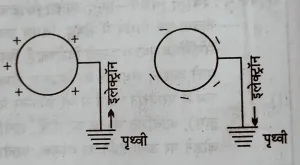 इलेक्ट्रॉन
पृथ्वी
इलेक्ट्रॉन
पृथ्वी